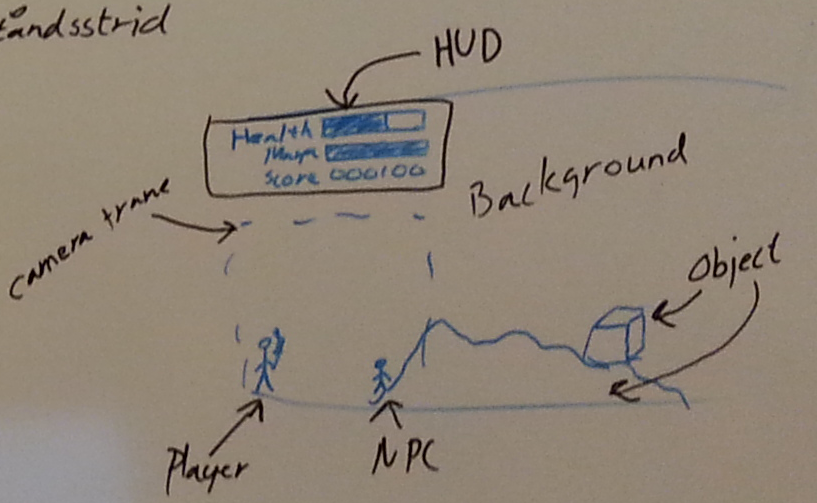 tåndsstrid
HUD
Health
Mana
Score 000100
Background
camera frame
Object
Player
NPC